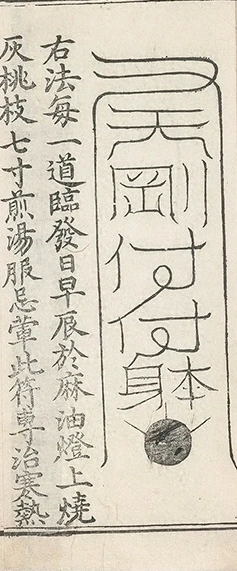 天剛付付躰
右法每一道臨發日早辰於麻油燈上燒
灰桃枝七寸煎湯服忌葷此符專治寒熱